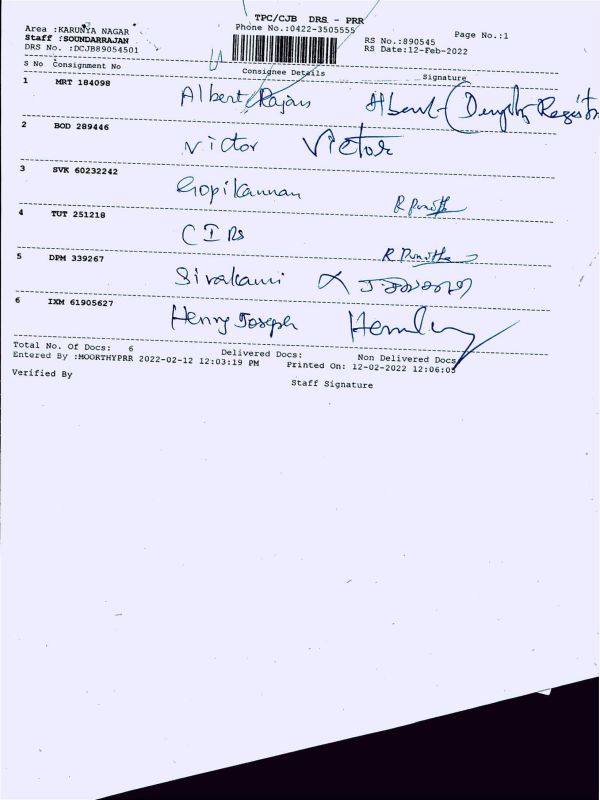 TPC/CJB DRS - PRR
Area :KARUNYA NAGAR
Phone No.:0422-3505555
Page No.:1
Staff :SOUNDARRAJAN
RS No.:890545
DRS No. :DCJB89054501
RS Date:12-Feb-2022
S No Consignment No Consignee Details Signature
1 MRT 184098 Albert Rajan Albert (Deputy Registrar
2 BOD 289446 Victor Victor
3 SVK 60232242 Gopikannan R Punitha
4 TUT 251218 R Punitha
5 DPM 339267 Sivakami
6 IXM 61905627 Henry Joseph
Total No. Of Docs: 6 Delivered Docs: Non Delivered Docs
Entered By :MOORTHYPRR 2022-02-12 12:03:19 PM Printed On: 12-02-2022 12:06:05
Verified By Staff Signature